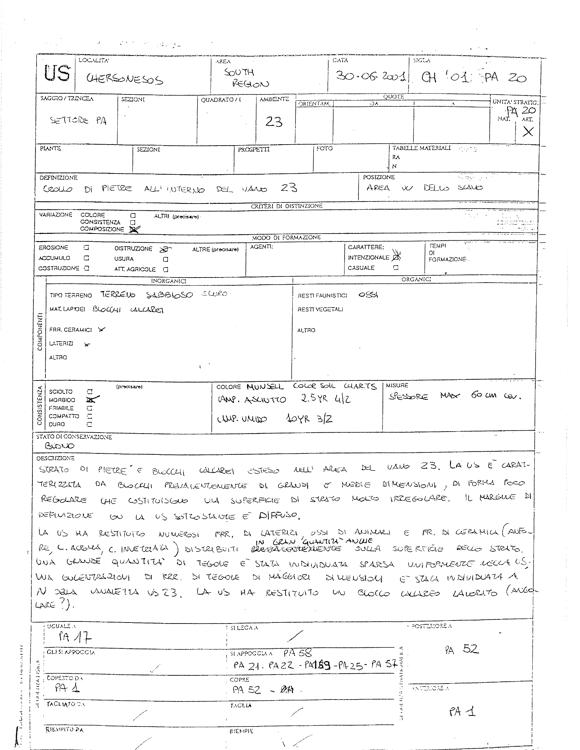 US
LOCALITA'
CHERSONESOS
AREA
SOUTH
REGION
DATA
30-06-2001
SIGLA
CH '01 PA 20
SAGGIO / TRINCEA
SETTORE PA
SEZIONI
QUADRATO / I
AMBIENTE
23
QUOTE
ORIENTAM.
DA
A
UNITA' STRATIG.
PA 20
NAT.
ART.
X
PIANTE
SEZIONI
PROSPETTI
FOTO
TABELLE MATERIALI
RA
N
DEFINIZIONE
CROLLO DI PIETRE ALL'INTERNO DEL VANO 23
POSIZIONE
AREA W DELLO SCAVO
CRITERI DI DISTINZIONE
VARIAZIONE
COLORE
CONSISTENZA
COMPOSIZIONE
ALTRI (precisare)
MODO DI FORMAZIONE
EROSIONE
ACCUMULO
COSTRUZIONE
DISTRUZIONE
USURA
ATT. AGRICOLE
ALTRE (precisare)
AGENTI:
CARATTERE:
INTENZIONALE
CASUALE
TEMPI
DI
FORMAZIONE
COMPONENTI
INORGANICI
TIPO TERRENO TERRENO SABBIOSO SCURO
MAT. LAPIDEI BLOCCHI CALCAREI
FRR. CERAMICI
LATERIZI
ALTRO
ORGANICI
RESTI FAUNISTICI OSSI
RESTI VEGETALI
ALTRO
CONSISTENZA
SCIOLTO
MORBIDO
FRIABILE
COMPATTO
DURO
(precisare)
COLORE MUNSELL COLOR SOIL CHARTS
CAMP. ASCIUTTO 2.5YR 4/2
CAMP. UMIDO 10YR 3/2
MISURE
SPESSORE MAX 60 cm
STATO DI CONSERVAZIONE
BUONO
DESCRIZIONE
STRATO DI PIETRE E BLOCCHI CALCAREI ESTESO NELL'AREA DEL VANO 23. LA US È CARAT-
TERIZZATA DA BLOCCHI PREVALENTEMENTE DI GRANDI E MEDIE DIMENSIONI, DI FORMA POCO
REGOLARE CHE COSTITUISCONO UNA SUPERFICIE DI STRATO MOLTO IRREGOLARE. IL MARGINE DI
DEFINIZIONE CON LA US SOTTOSTANTE È DIFFUSO.
LA US HA RESTITUITO NUMEROSI FRR. DI LATERIZI, OSSI DI ANIMALI E FR. DI CERAMICA (ANFO-
RE, C. ACROMA, C. INVETRIATA) DISTRIBUITI IN GRAN QUANTITÀ ANCHE SULLA SUPERFICIE DELLO STRATO.
UNA GRANDE QUANTITÀ DI TEGOLE È STATA INDIVIDUATA SPARSA UNIFORMEMENTE NELLA US.
UNA CONCENTRAZIONE DI FRR. DI TEGOLE DI MAGGIORI DIMENSIONI È STATA INDIVIDUATA A
N DELLA US 23. LA US HA RESTITUITO UN BLOCCO CALCAREO LAVORATO (ANGO-
LARE?).
UGUALE A
PA 17
SI LEGA A
GLI SI APPOGGIA
SI APPOGGIA A PA 58
PA 21 - PA 22 - PA 189 - PA 25 - PA 57
COPERTO DA
PA 1
COPRE
PA 52
TAGLIATO DA
TAGLIA
RIEMPITO DA
RIEMPIE
POSTERIORE A
PA 52
ANTERIORE A
PA 1